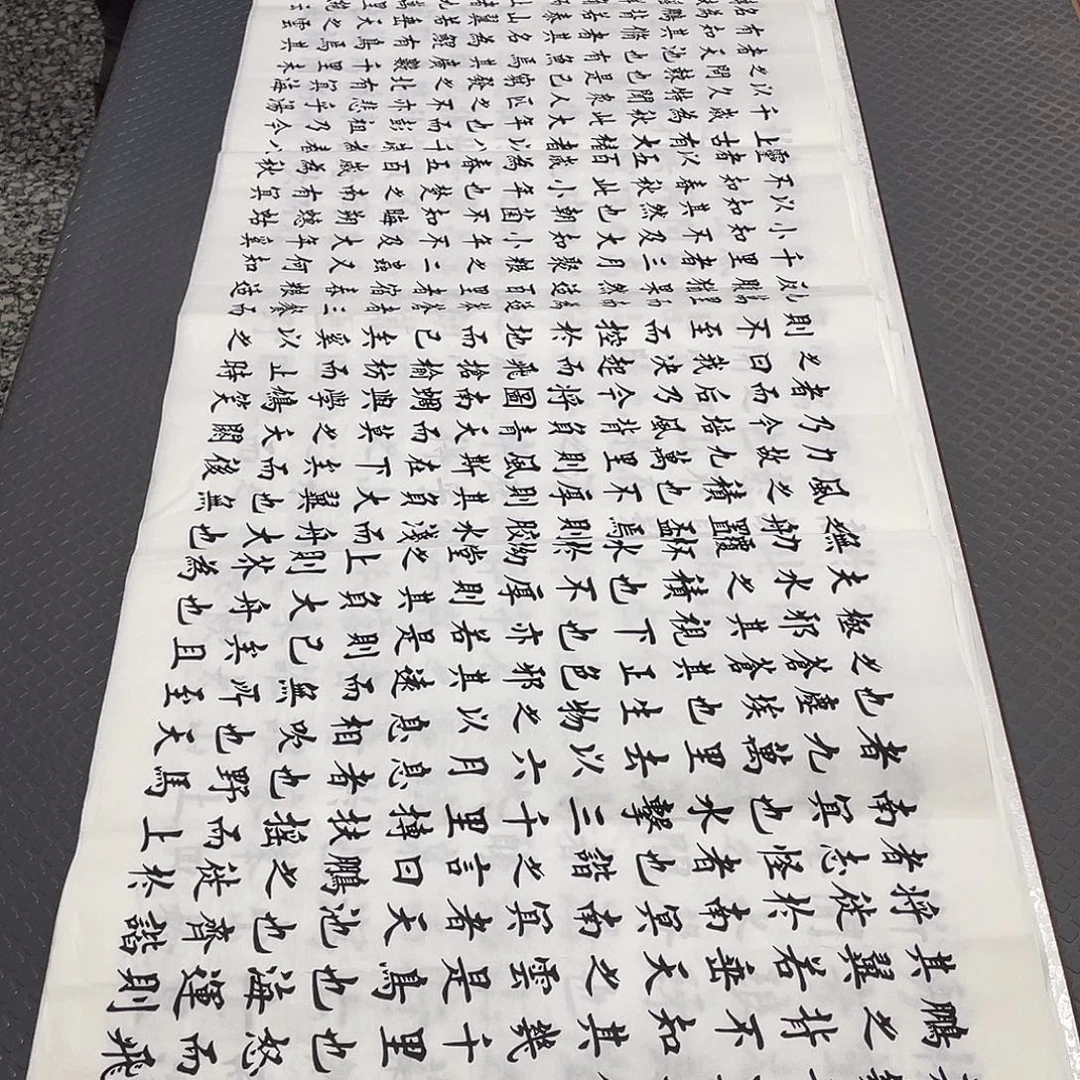 鵬之背不知其幾千里也怒而飛
其翼若垂天之雲是鳥也海運則
將徙於南冥南冥者天池也齊諧
者志怪者也諧之言曰鵬之徙於
南冥也水擊三千里摶扶搖而上
者九萬里去以六月息者也野馬
也塵埃也生物之以息相吹也天
之蒼蒼其正色邪其遠而無所至
極邪其視下也亦若是則已矣且
夫水之積也不厚則其負大舟也
無力覆杯水於坳堂之上則芥為
之舟置杯焉則膠水淺而舟大也
風之積也不厚則其負大翼也無
力故九萬里則風斯在下矣而後
乃今培風背負青天而莫之夭閼
者而後乃今將圖南蜩與學鳩笑
之曰我決起而飛搶榆枋而止時
則不至而控於地而已矣奚以之
九萬里而南為適莽蒼者三餐而
反腹猶果然適百里者宿舂糧適
千里者三月聚糧之二蟲又何知
小知不及大知小年不及大年奚
以知其然也朝菌不知晦朔蟪蛄
不知春秋此小年也楚之南有冥
靈者以五百歲為春五百歲為秋
上古有大椿者以八千歲為春八
千歲為秋此大年也而彭祖乃今
以久特聞眾人匹之不亦悲乎湯
之問棘也是已窮髮之北有冥海
者天池也有魚焉其廣數千里未
有知其脩者其名為鯤有鳥焉其
名為鵬背若泰山翼若垂天之雲